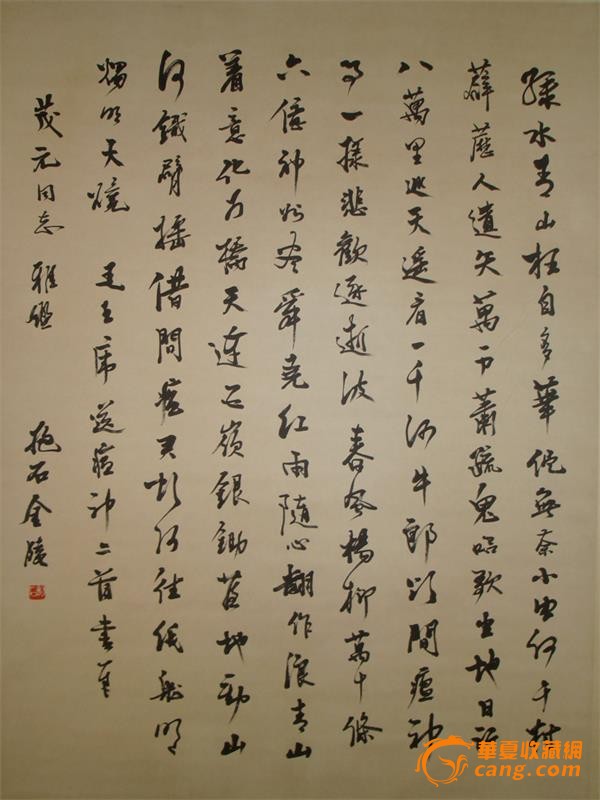 綠水青山枉自多華佗無奈小虫何千村
薜荔人遺矢萬戶蕭疏鬼唱歌坐地日行
八萬里巡天遙看一千河牛郎欲問瘟神
事一樣悲歡逐逝波春風楊柳萬千條
六億神州盡舜堯紅雨隨心翻作浪青山
着意化为橋天連五嶺銀鋤落地動山
河鐵臂搖借問瘟君欲何往紙船明
燭照天燒 毛主席送瘟神二首書奉
茂元同志 雅鑒 抱石金陵
華夏收藏網
cang.com